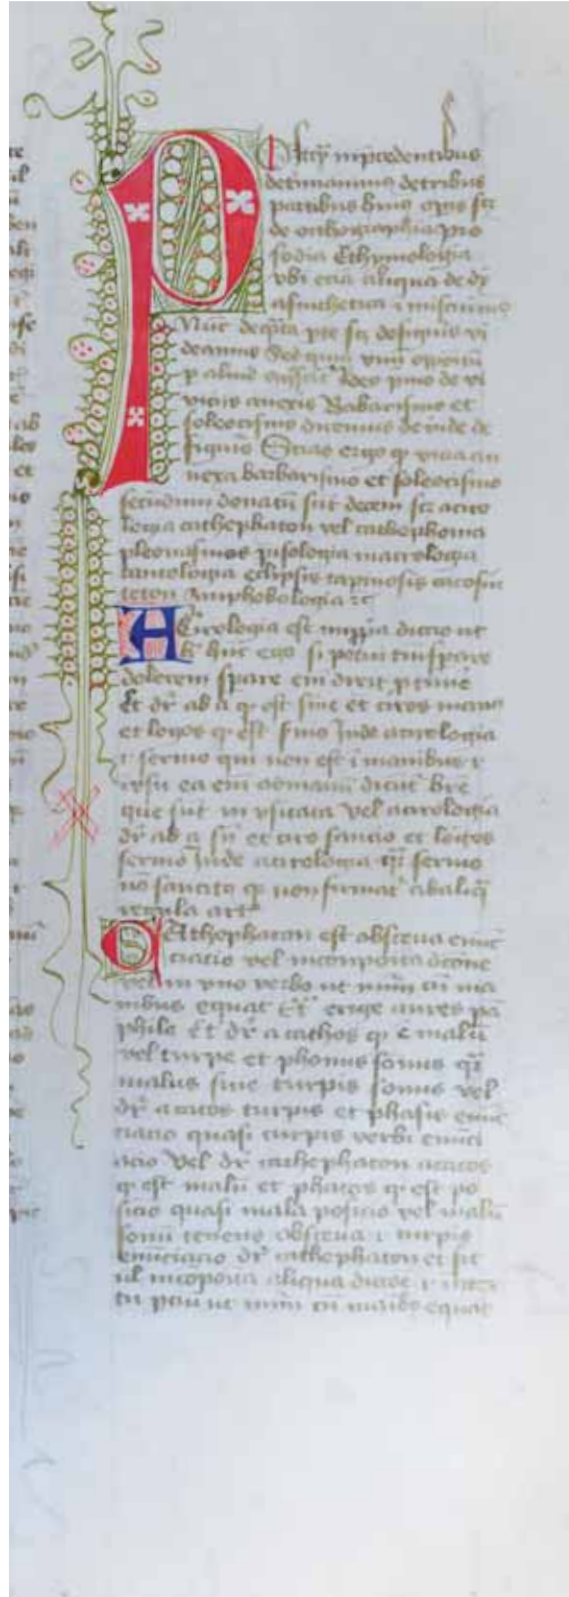 P Ostq̃ in p̃cedentibus
det̃minauimus de tribus
partibus huius op̃is sc̃z
de orthographia pro
sodia Ethymologia
vbi eciã aliqua de dy
asinthetica
Nunc de q̃rta p̃te sc̃z de figuris vi
deamus Sed
p̃ aliud Ideo p̃mo de vi
viciis anexis Barbarismo et
soloecismo dicemus deinde de
figuris Scias ergo q̃ vicia an
nexa barbarismo et soloecismo
secundum donatũ sũt decem sc̃z aciro
logia cathephaton vel cathephonia
pleonasmos p̃isologia macrologia
tautologia eclipsis tapinosis cacosin
teton Amphibologia ⁊c
A Cirologia est imp̃ria dictio ut
hũc ego si potui tm̃ sperare
dolorem sperare em̃ dixit p̃ timere
Et dr̃ ab a q̃ est sine et ciros manus
et logos q̃ est s̃mo Inde acirologia
⁊ sermo qui non est ĩ manibus ⁊
vsu ea em̃ ad manũ dicũt hr̃e
que sunt in vsitata vel acirologia
dr̃ ab a sñ et ciro sancio et logos
sermo Inde acirologia q̃si sermo
nõ sancitq q̃ non firmat̃ ab aliq̃
regula art̃
C Athephaton est obscena enũc
ciacio vel incomposita dictõne
vel in vno verbo ut nũm cũ ma
nibus equat Et̃ erige aures pã
phile Et dr̃ a cathos q̃ ẽ malũ
vel turpe et phonus sonus q̃si
malus siue turpis sonus vel
dr̃ a cacos turpis et phasis enũc
ciacio quasi turpis verbi enũci
acio Vel dr̃ cathephaton a cacos
q̃ est malũ et phatos q̃ est po
sicio quasi mala posicio vel malũ
sonũ tenens obscena ⁊ turpis
enũciacio dr̃ cathephaton et fit
ul incõposita aliqua dictõe
ut nũm cũ manib̃s equat